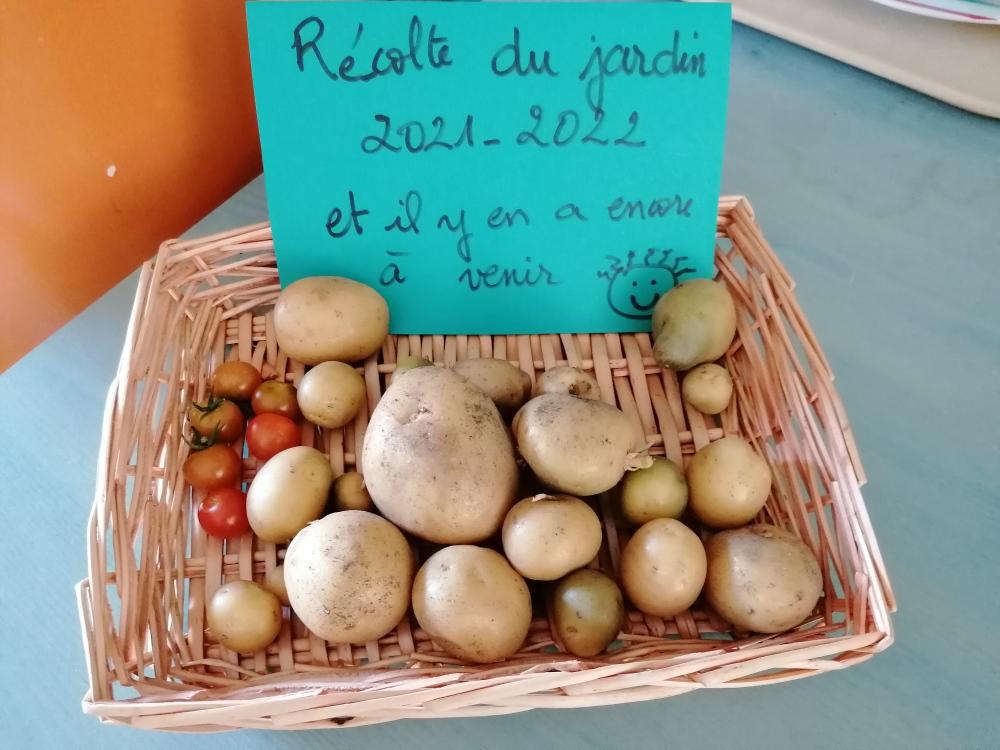 Récolte du jardin
2021-2022
et il y en a encore
à venir